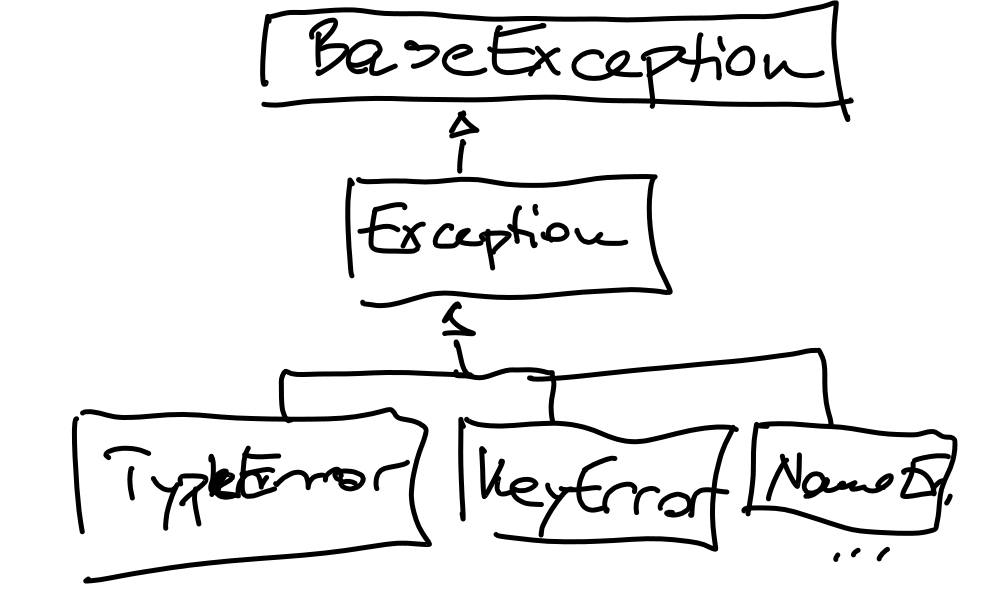 BaseException
Exception
TypeError
KeyError
NameEr.
...